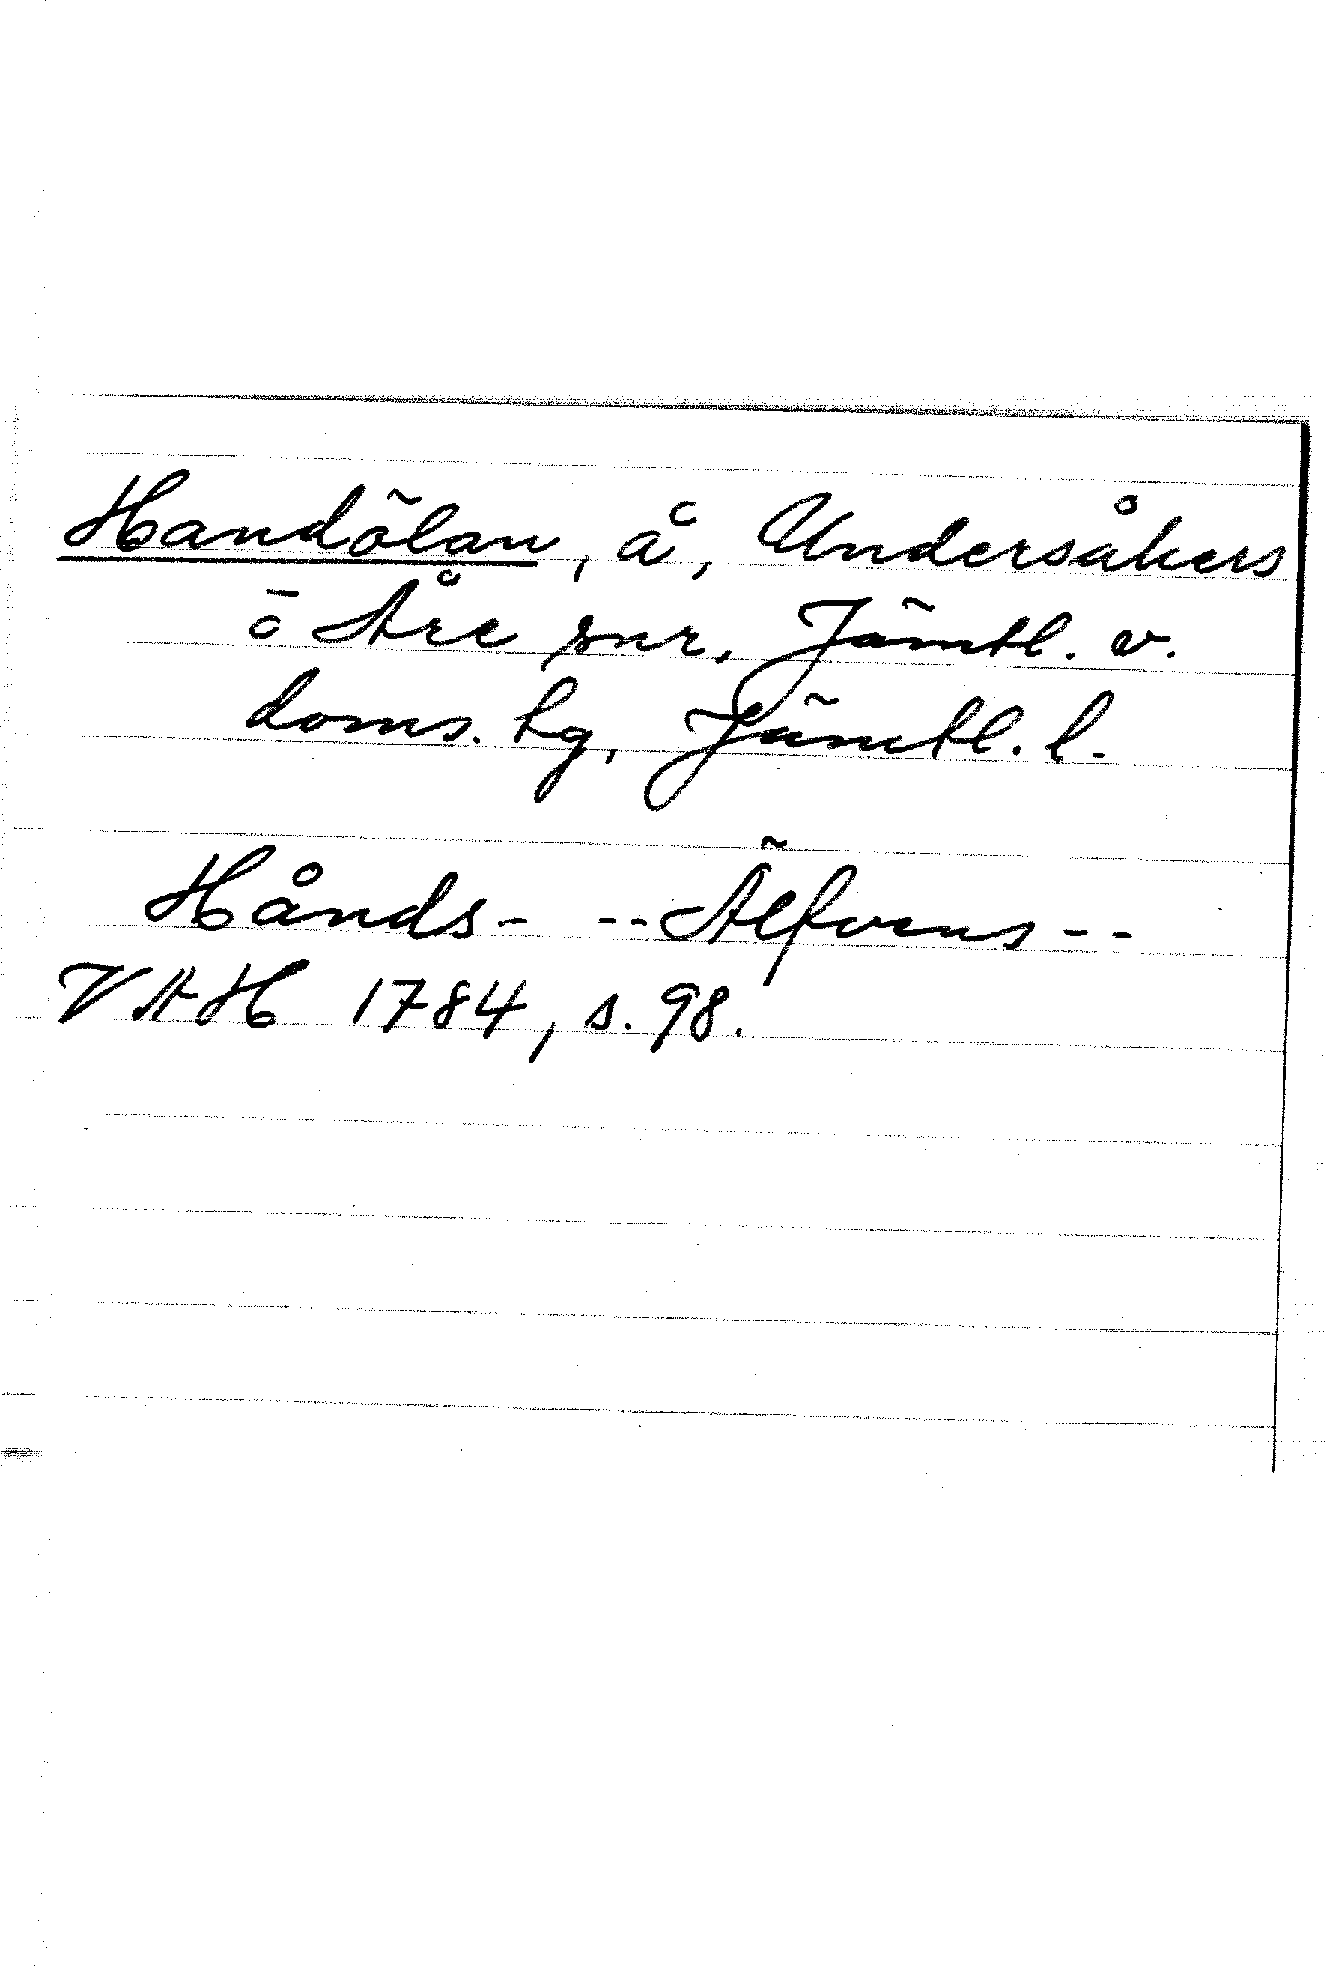 Handölan, å, Undersåkers
o Åre snr, Jämtl. v.
doms. tg, Jämtl. l.
Hånds- --Älfvens--
VAH 1784, s. 98.